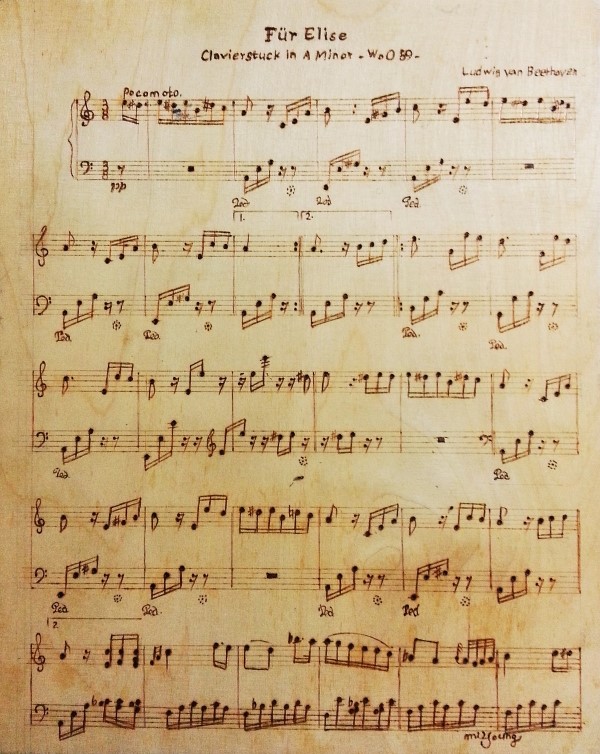 Für Elise
Clavierstuck in A Minor - WoO 59 -
Ludwig van Beethoven
Pocomoto.
pp
Ped Ped Ped.
1. 2.
Ped. Ped. Ped. Ped.
Ped. Ped.
Ped. Ped. Ped. Ped
2.